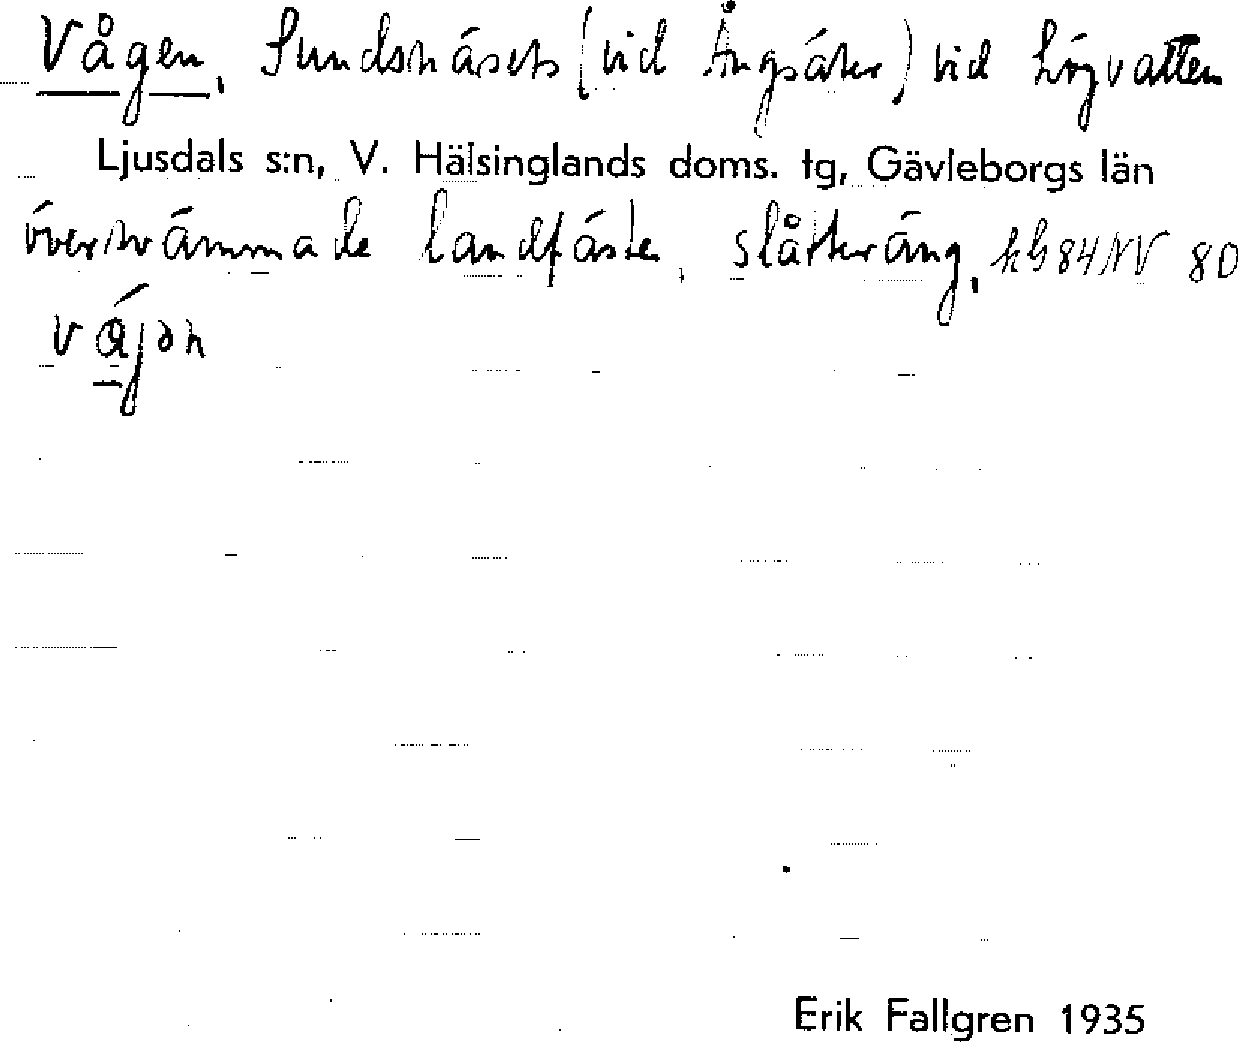 Vågen, Sundsnäsets (vid Ängsäter) vid högvatten
Ljusdals s:n, V. Hälsinglands doms. tg, Gävleborgs län
översvämmade landfäste, slåtteräng, hG84NV 80
vájən
Erik Fallgren 1935